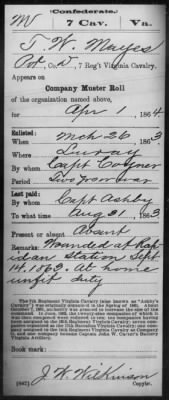 Confederate.
MV 7 Cav. Va.
T. W. Mayes
Pvt., Co. D, 7 Reg't Virginia Cavalry.
Appears on
Company Muster Roll
of the organization named above,
for Apr 1, 1864
Enlisted:
When Mch 26, 1863.
Where Luray
By whom Capt Coyner
Period Two yrs or war
Last paid:
By whom Capt Ashby
To what time Aug 31, 1863
Present or absent Absent
Remarks: Wounded at Rap
idan Station Sept
14. 1863. At home
unfit duty
Book mark:
J. W. Wilkinson
(642) Copyist.